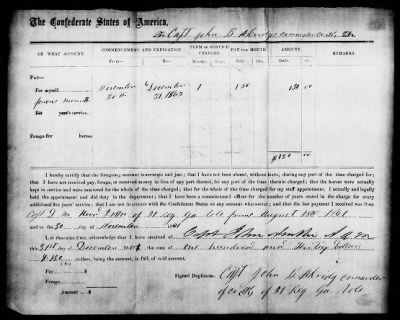 The Confederate States of America,
To Capt. John B. Akridge commander Co. K, Dr.
ON WHAT ACCOUNT.
COMMENCEMENT AND EXPIRATION.
TERM OF SERVICE CHARGED.
PAY PER MONTH
AMOUNT.
REMARKS.
From— To— Months. Days. Dols. Cts. Dols. Cts.
PAY—
For myself, November December 1 130 130 00
30 th 31, 1862
For year's service;
FORAGE for horses:
$130 00
I hereby certify that the foregoing account is accurate and just; that I have not been absent, without leave, during any part of the time charged; that
I have not received pay, forage, or received money in lieu of any part thereof, for any part of the time therein charged; that the horses were actually
kept in service and were mustered for the whole of the time charged; that for the whole of the time charged for my staff appointment, I actually and legally
held the appointment and did duty in the department; that I have been a commissioned officer for the number of years stated in the charge for every
additional five years' service; that I am not in arrears with the Confederate States on any account whatsoever; and that the last payment I received was from
Capt. of 31 Reg Ga. August 1861
and to the 30 day of November
I, at the same time, acknowledge that I have received of Capt John A Q M
this 31st day of December one hundred and thirty dollars
$130 dollars, being the amount, in full, of said account.
PAY
FORAGE
AMOUNT
Signed Duplicates. Capt John B Akridge commander
of Co K, of 31 Reg Ga Vols